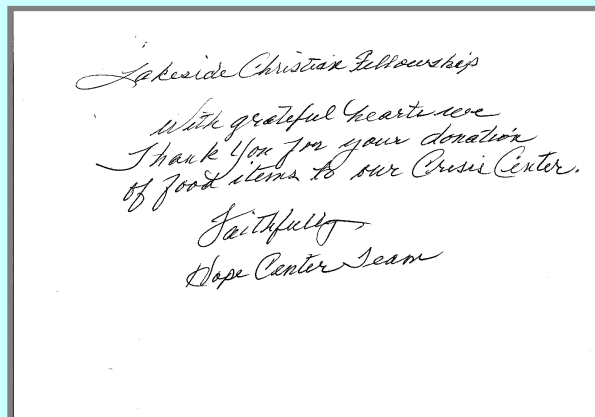 Lakeside Christian Fellowship
With grateful hearts we
Thank You for your donation
of food items to our Crisis Center.
Faithfully,
Hope Center Team